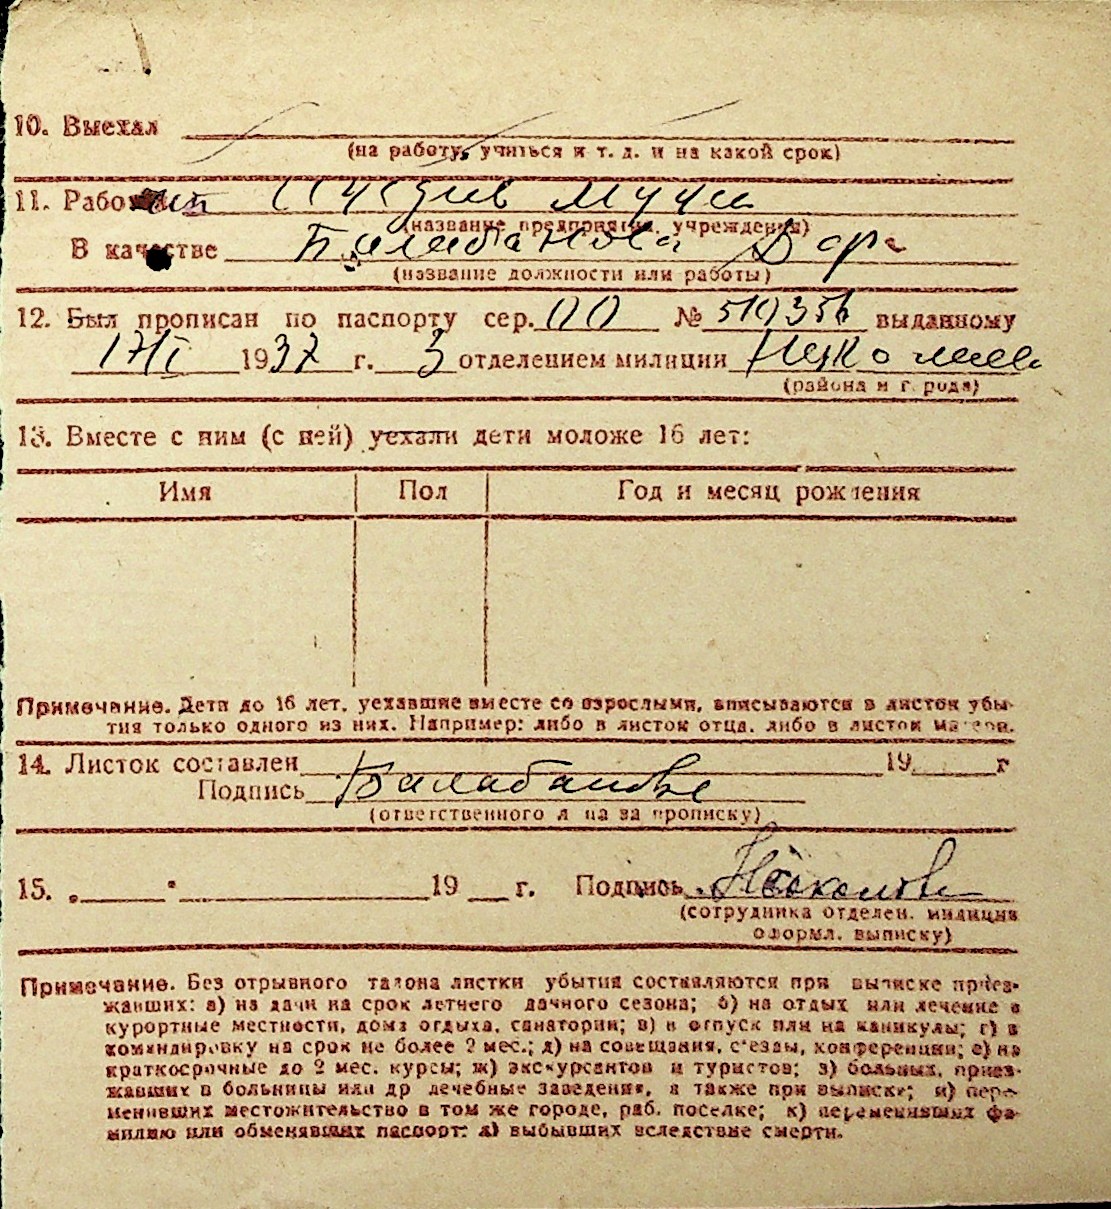 10. Выехал
(на работу, учиться и т. д. и на какой срок)
11. Рабо
(название предприятия, учреждения)
В качестве Балабанова Дора
(название должности или работы)
12. Был прописан по паспорту сер. № 510356 выданному
17/I 1937 г. 3 отделением милиции
(района и города)
13. Вместе с ним (с ней) уехали дети моложе 16 лет:
Имя Пол Год и месяц рождения
Примечание. Дети до 16 лет, уехавшие вместе со взрослыми, вписываются в листок убы-
тия только одного из них. Например: либо в листок отца, либо в листок матери.
14. Листок составлен 19 г
Подпись Балабанова
(ответственного лица за прописку)
15. „ " 19 г. Подпись
(сотрудника отделен. милиции
оформл. выписку)
Примечание. Без отрывного талона листки убытия составляются при выписке приез-
жавших: а) на дачи на срок летнего дачного сезона; б) на отдых или лечение в
курортные местности, дома отдыха, санатории; в) в отпуск или на каникулы; г) в
командировку на срок не более 2 мес.; д) на совещания, съезды, конференции; е) на
краткосрочные до 2 мес. курсы; ж) экскурсантов и туристов; з) больных, приез-
жавших в больницы или др лечебные заведения, а также при выписке; и) пере-
менивших местожительство в том же городе, раб. поселке; к) переменивших фа-
милию или обменявших паспорт; л) выбывших вследствие смерти.